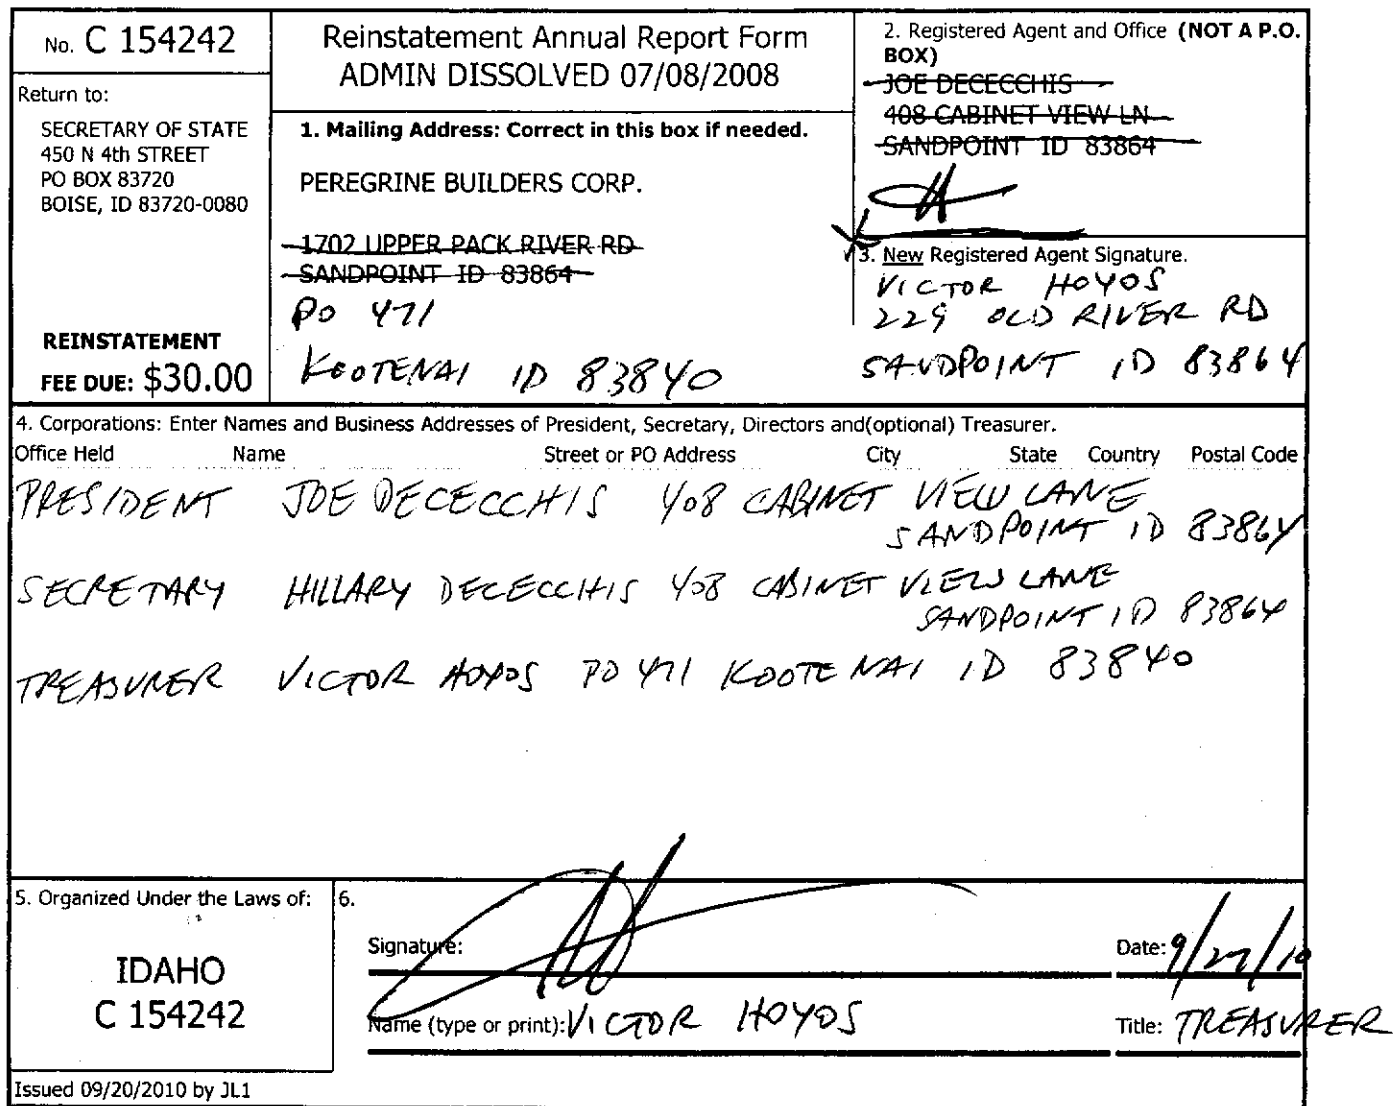 No. C 154242
Return to:
SECRETARY OF STATE
450 N 4th STREET
PO BOX 83720
BOISE, ID 83720-0080
REINSTATEMENT
FEE DUE: $30.00
Reinstatement Annual Report Form
ADMIN DISSOLVED 07/08/2008
1. Mailing Address: Correct in this box if needed.
PEREGRINE BUILDERS CORP.
1702 UPPER PACK RIVER RD
SANDPOINT ID 83864
PO 471
KOOTENAI ID 83840
2. Registered Agent and Office (NOT A P.O.
BOX)
JOE DECECCHIS
408 CABINET VIEW LN
SANDPOINT ID 83864
3. New Registered Agent Signature.
VICTOR HOYOS
229 OLD RIVER RD
SANDPOINT ID 83864
4. Corporations: Enter Names and Business Addresses of President, Secretary, Directors and(optional) Treasurer.
Office Held Name Street or PO Address City State Country Postal Code
PRESIDENT JOE DECECCHIS 408 CABINET VIEW LANE
SANDPOINT ID 83864
SECRETARY HILLARY DECECCHIS 408 CABINET VIEW LANE
SANDPOINT ID 83864
TREASURER VICTOR HOYOS PO 471 KOOTENAI ID 83840
5. Organized Under the Laws of:
IDAHO
C 154242
6.
Signature:
Date: 9/27/10
Name (type or print): VICTOR HOYOS
Title: TREASURER
Issued 09/20/2010 by JL1